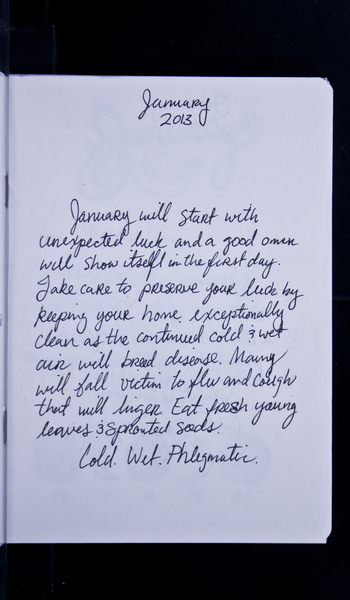 January
2013
January will start with
unexpected luck and a good omen
will show itself in the first day.
Take care to preserve your luck by
keeping your home exceptionally
clean as the continued cold & wet
air will breed disease. Many
will fall victim to flu and cough
that will linger. Eat fresh young
leaves & sprouted seeds.
Cold. Wet. Phlegmatic.